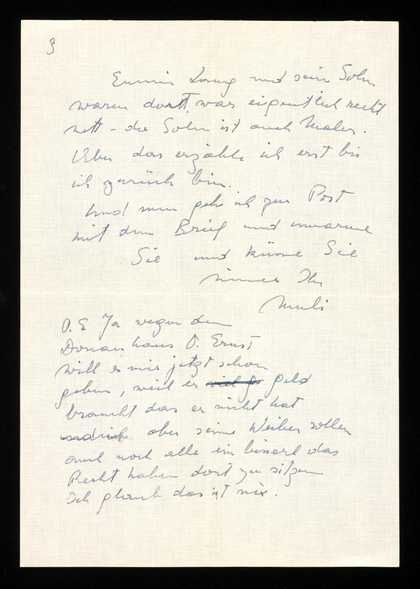 3
und sein Sohn
waren dort, war eigentlich recht
nett - der Sohn ist auch Maler.
Aber das erzähle ich erst bis
ich zurück bin.
Und nun gehe ich zur Post
mit dem Brief und umarme
Sie und küsse Sie
immer Ihr
Muli
Ja wegen dem
Donauhaus O. Ernst
will es mir jetzt schon
geben, weil er geld
braucht das er nicht hat
aber seine Weiber sollen
und noch alle ein bisserl das
Recht haben dort zu sitzen
Ich glaub das ist nix.